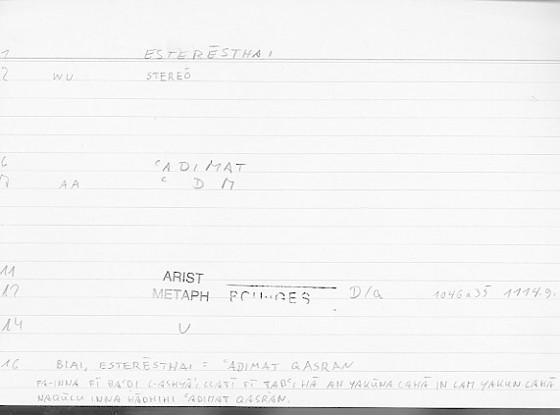 1 ESTERĒSTHAI
2 WU STEREŌ
6 ʿADIMAT
7 AA ʿ D M
11 ARIST
12 METAPH BOUYGES D/a 1046a35 1114.9.
14 U
16 BIAI, ESTERĒSTHAI = ʿADIMAT QASRAN
FA-INNA FĪ BAʿDI L-ASHYĀʾI LLATĪ FĪ TABʿI HĀ AN YAKŪNA LAHĀ IN LAM YAKUN LAHĀ
NAQŪLU INNA HĀDHIHI ʿADIMAT QASRAN.